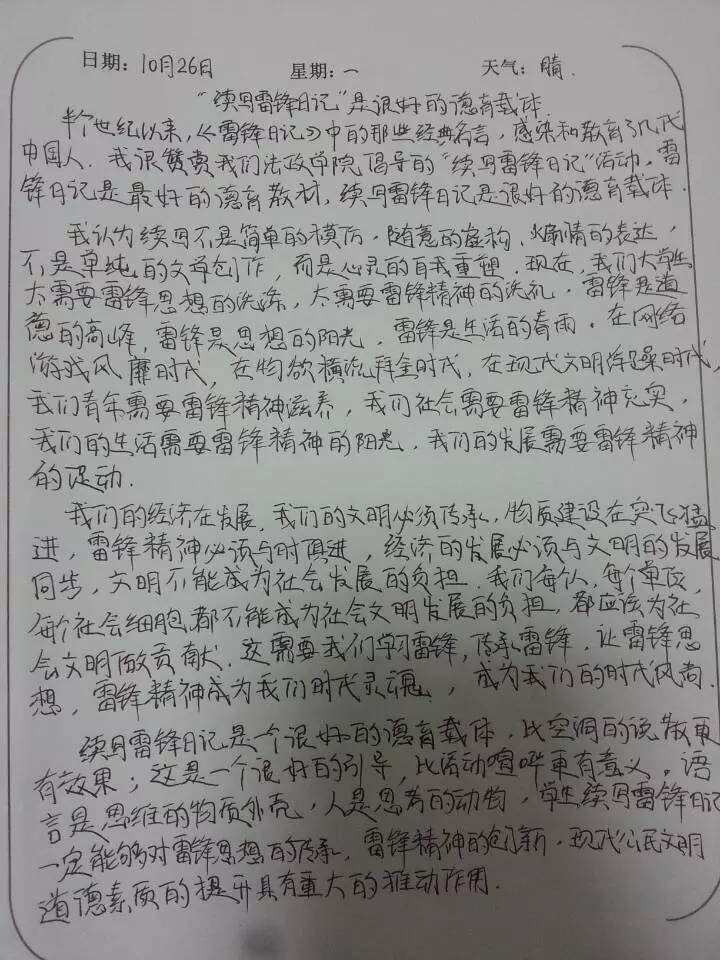 日期：10月26日 星期：一 天气：晴.
"续写雷锋日记"是很好的德育载体.
半个世纪以来，《雷锋日记》中的那些经典名言，感染和教育了几代
中国人．我很赞赏我们法政学院倡导的"续写雷锋日记"活动，雷
锋日记是最好的德育教材，续写雷锋日记是很好的德育载体．
我认为续写不是简单的模仿．随意的虚构、煽情的表达，
不是单纯的文学创作，而是心灵的自我重塑．现在，我们大学生
太需要雷锋思想的洗涤，太需要雷锋精神的洗礼．雷锋是道
德的高峰，雷锋是思想的阳光，雷锋是生活的春雨．在网络
游戏风靡时代，在物欲横流拜金时代，在现代文明浮躁时代，
我们青年需要雷锋精神滋养，我们社会需要雷锋精神充实，
我们的生活需要雷锋精神的阳光，我们的发展需要雷锋精神
的促动．
我们的经济在发展，我们的文明必须传承，物质建设在突飞猛
进，雷锋精神必须与时俱进，经济的发展必须与文明的发展
同步，文明不能成为社会发展的负担．我们每个人，每个单位，
每个社会细胞都不能成为社会文明发展的负担，都应该为社
会文明做贡献．这需要我们学习雷锋，传承雷锋，让雷锋思
想，雷锋精神成为我们时代灵魂，成为我们的时代风尚．
续写雷锋日记是一个很好的德育载体，比空洞的说教更
有效果；这是一个很好的引导，比活动喧哗更有意义．语
言是思维的物质外壳，人是思考的动物，学生续写雷锋日记
一定能够对雷锋思想的传承，雷锋精神的创新，现代公民文明
道德素质的提升具有重大的推动作用．